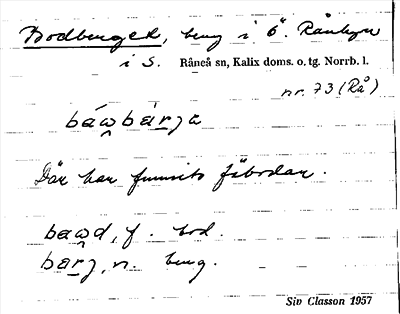 Bodberget, berg i ö. Rånbyn
i S. Råneå sn, Kalix doms. o. tg. Norrb. l.
nr. 73 (Rå)
báw̯bárja
Där har funnits fäbodar.
baw̯d, f. bod.
barj, n. berg.
Siv Classon 1957